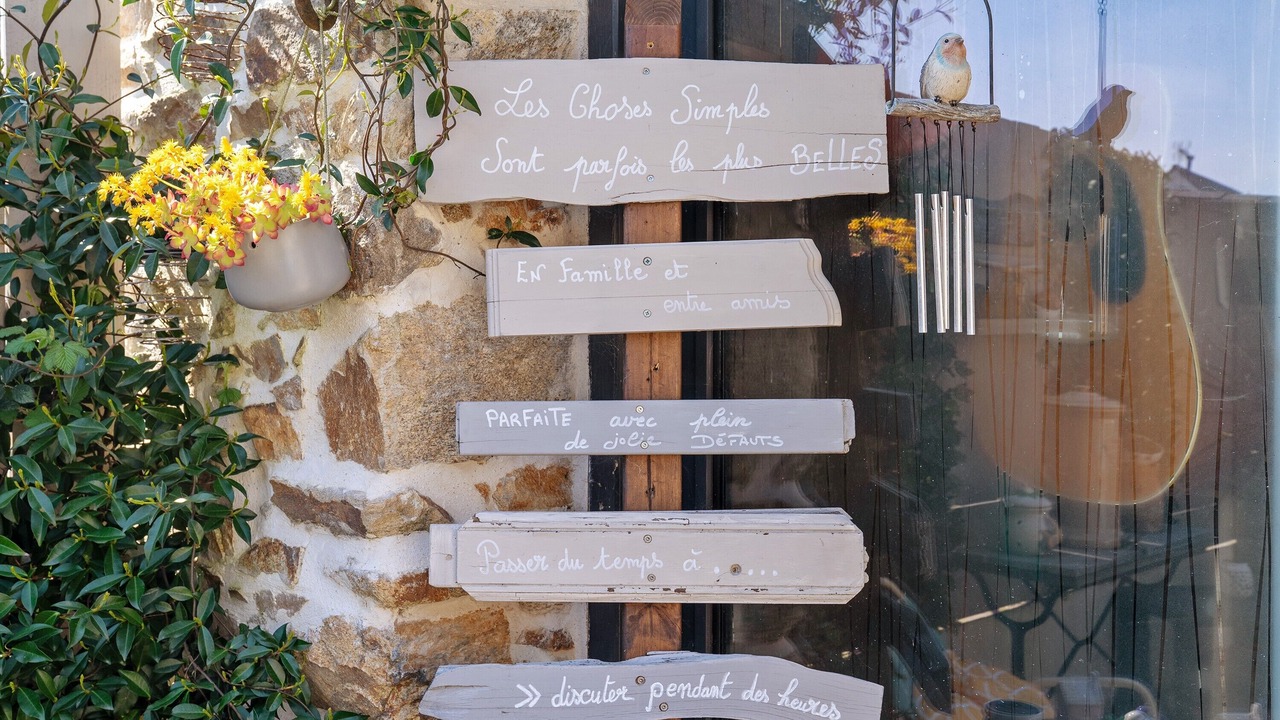 Les Choses Simples
Sont parfois les plus BELLES
EN Famille et
entre amis
PARFAITE avec plein
de jolie DÉFAUTS
Passer du temps à .....
>> discuter pendant des heures